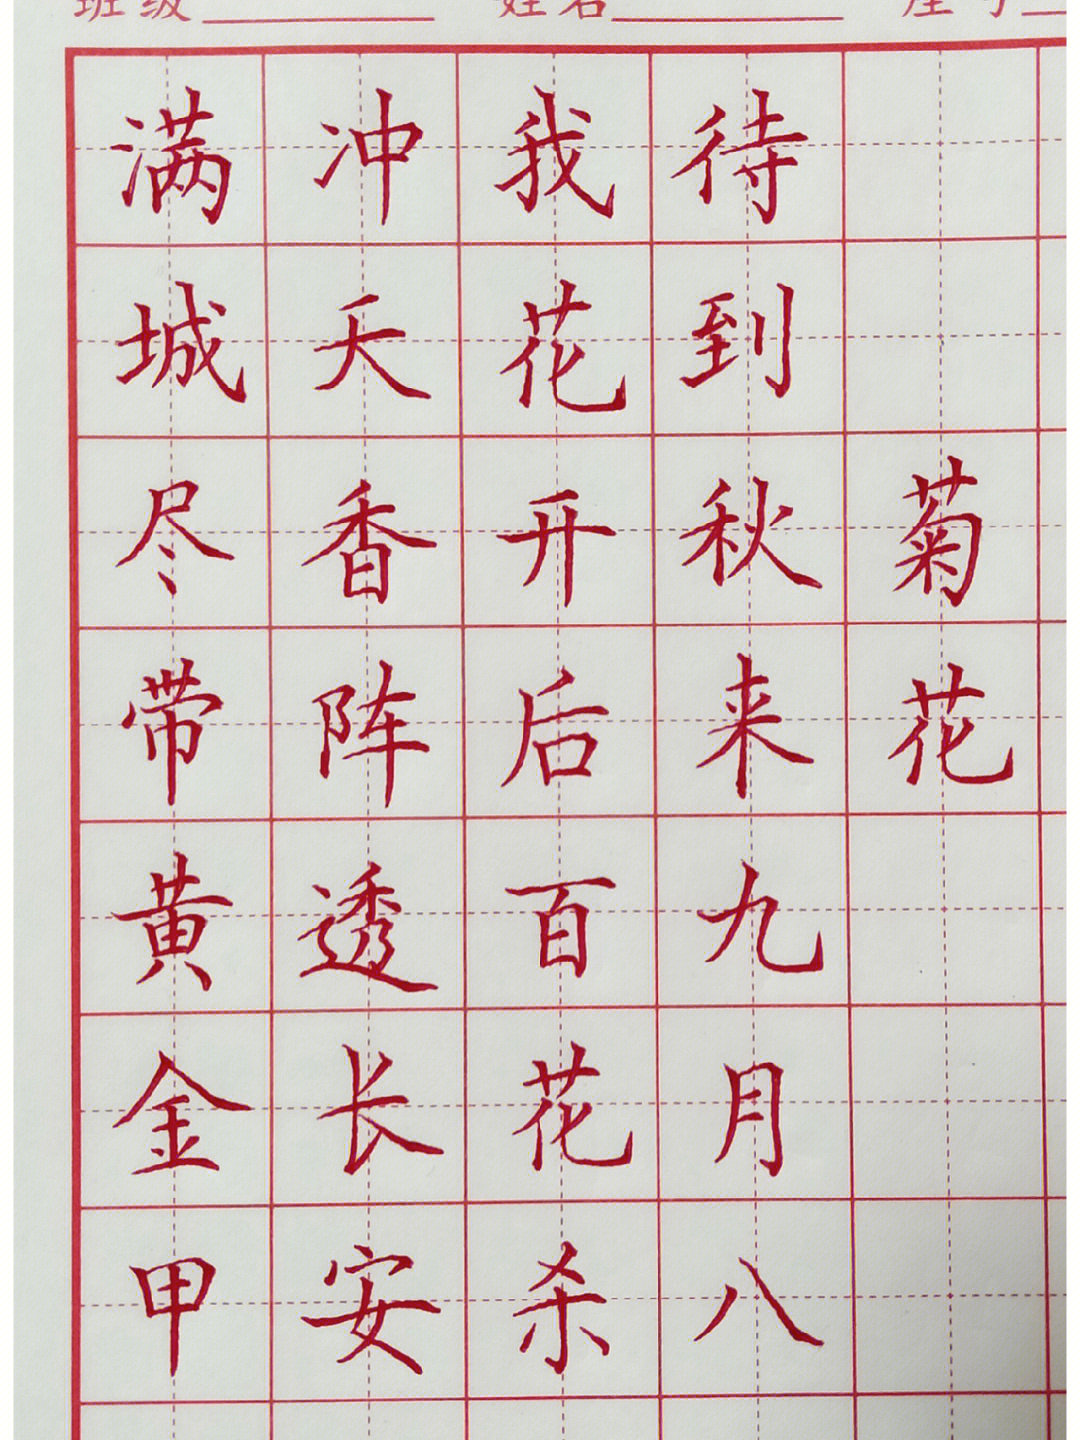 班级 姓名 座号
菊花
待到秋来九月八
我花开后百花杀
冲天香阵透长安
满城尽带黄金甲